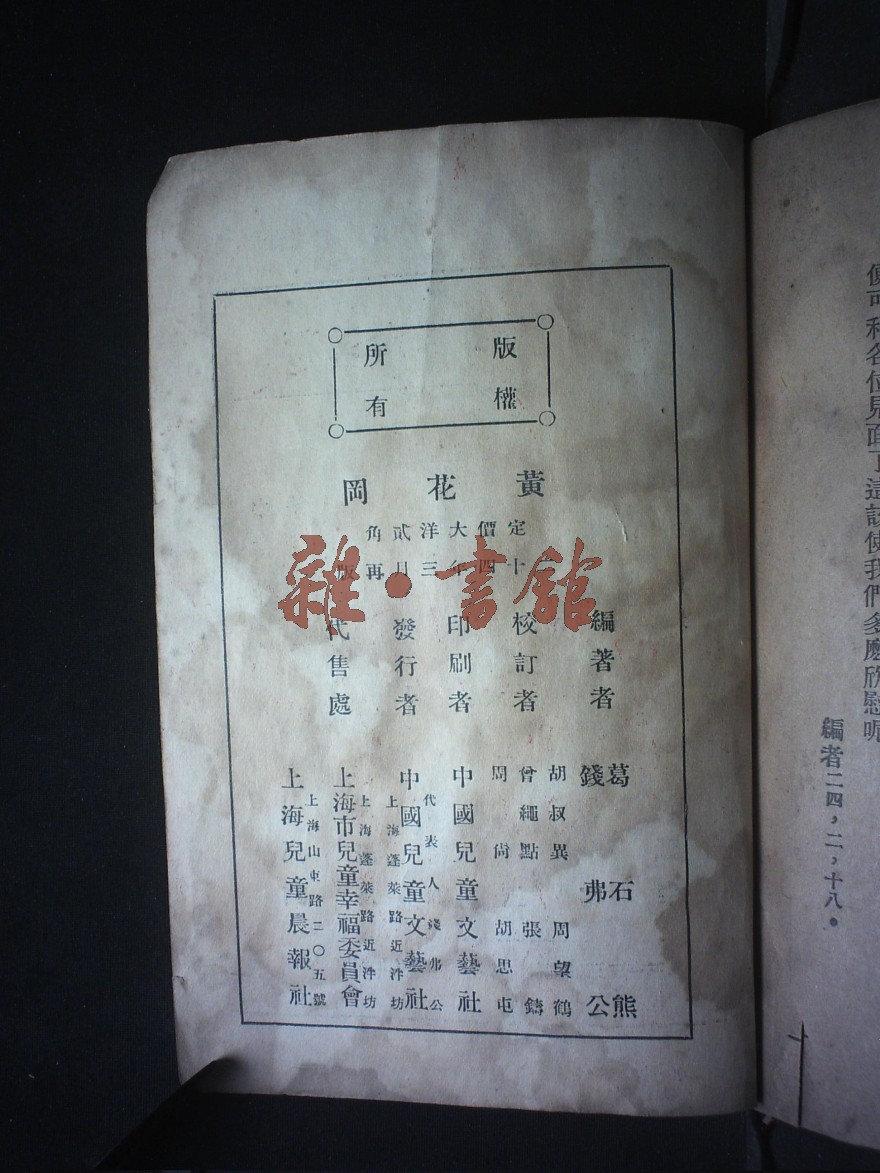 版權
所有
黃花岡
定價大洋貳角
十四年三月再版
編著者
葛石熊
錢弗公
校訂者
胡叔異 周望鶴
曾繩點 張鑄
周尙 胡思屯
印刷者
中國兒童文藝社
發行者
中國兒童文藝社
代表人 弗公
上海蓬萊路近泮坊
代售處
上海市兒童幸福委員會
上海蓬萊路近泮坊
上海兒童晨報社
上海山東路二〇五號
雜·書館
便可和各位見面了這該使我們多麽欣慰呢
編者二四，二，十八。